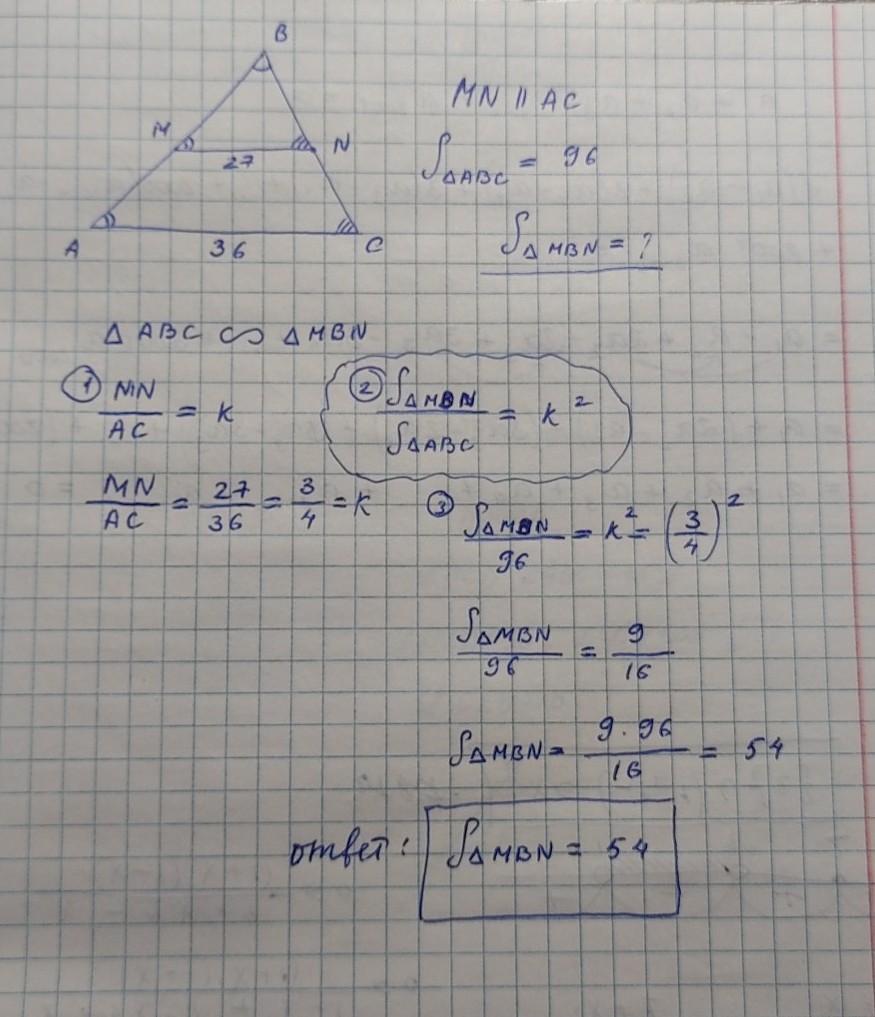 B
MN || AC
M N
27
S△ABC = 96
A 36 C
S△MBN = ?
△ ABC ∽ △ MBN
① MN/AC = K
② S△MBN/S△ABC = K²
MN/AC = 27/36 = 3/4 = K
③ S△MBN/96 = K² = (3/4)²
S△MBN/96 = 9/16
S△MBN = 9·96/16 = 54
ответ: S△MBN = 54